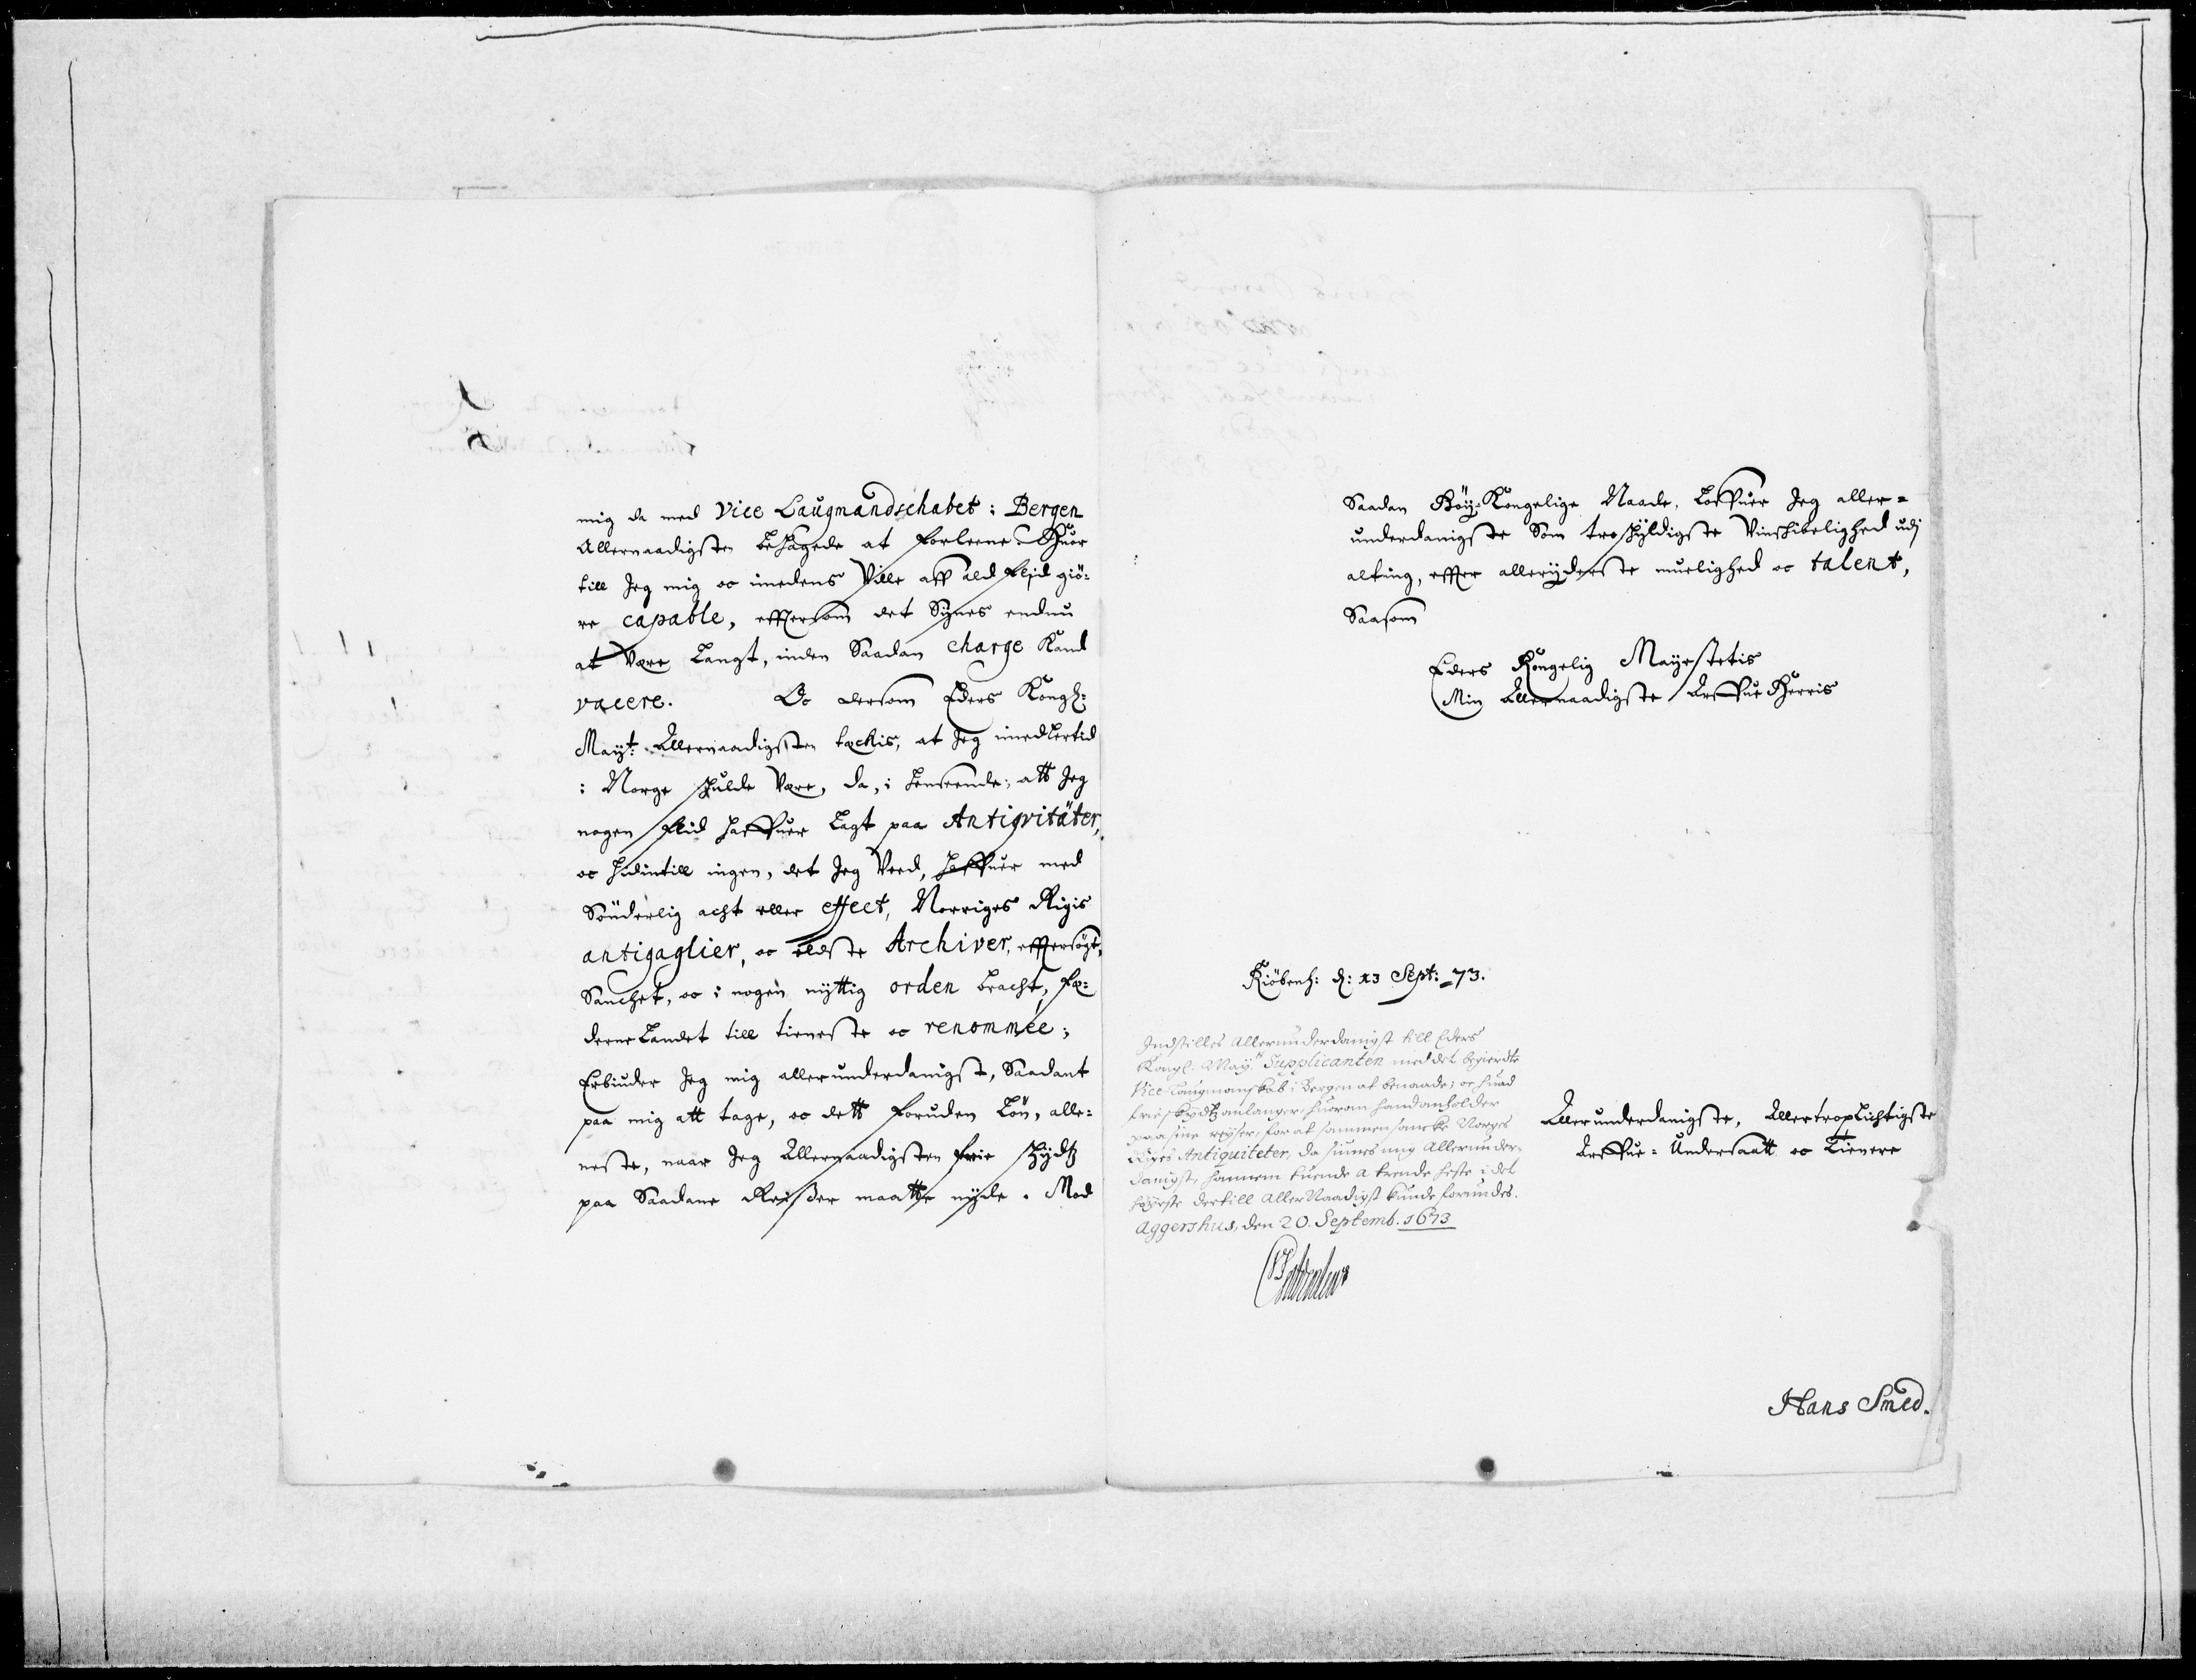 mig da med Vice Laugmandschabet i Bergen
Allernaadigsten behagede at forleene. Huor
till Jeg mig oc imedens Ville aff ald flid giö-
re capable, efftersom det Synes endnu
at Være Langt, inden Saadan charge Kand
vacere. Oc dersom Eders Kongl:
Mayt: Allernaadigsten tæckis, at Jeg imedlertid
i Norge skulde Være, da, i henseende, att Jeg
nogen flid haffuer Lagt paa Antiqvitäter,
oc hidintill ingen, det Jeg Veed, haffuer med
Sönderlig acht eller effect, Norriges Rigis
antiqaglier, oc eldste Archiver, efftersögt,
Sancket, oc i nogen nyttig orden bracht, Fæ-
derne Landet till tieneste oc renommée;
Erbiuder Jeg mig allerunderdanigst, Saadant
paa mig att tage, oc dett foruden Lön, alle-
neste, naar Jeg Allernaadigsten frie skydtz
paa Saadane Reißer maatte nyde. Mod
Saadan Höy-Kongelige Naade, Loffuer Jeg aller-
underdanigste Som troskyldigste Vinskibelighed udj
alting, effter alleryderste muelighed oc talent,
Saasom
Eders Kongelig Mayestetis
Min Allernaadigste Arffue Herris
Kiöbenh: d: 13 Sept: 73.
Indstilles Allerunderdanigst till Eders
Kongl. May.tt Supplicanten med det begierdte
Vice-Laugmanskab i Bergen at benaade; oc huad
frie skydtz anlanger, huorom hand anholder
paa sine reyser, for at sammensancke Norges
Riges Antiquiteter, da siunes mig Allerunder-
danigst, hannem tuende a trende heste i det
höyeste dertill AllerNaadigst kunde forundes.
Aggershus, den 20. Septemb. 1673
Gyldenlew
Allerunderdanigste, AllertropLichtigste
Arffue-Undersaatt oc Tienere
Hans Smed.